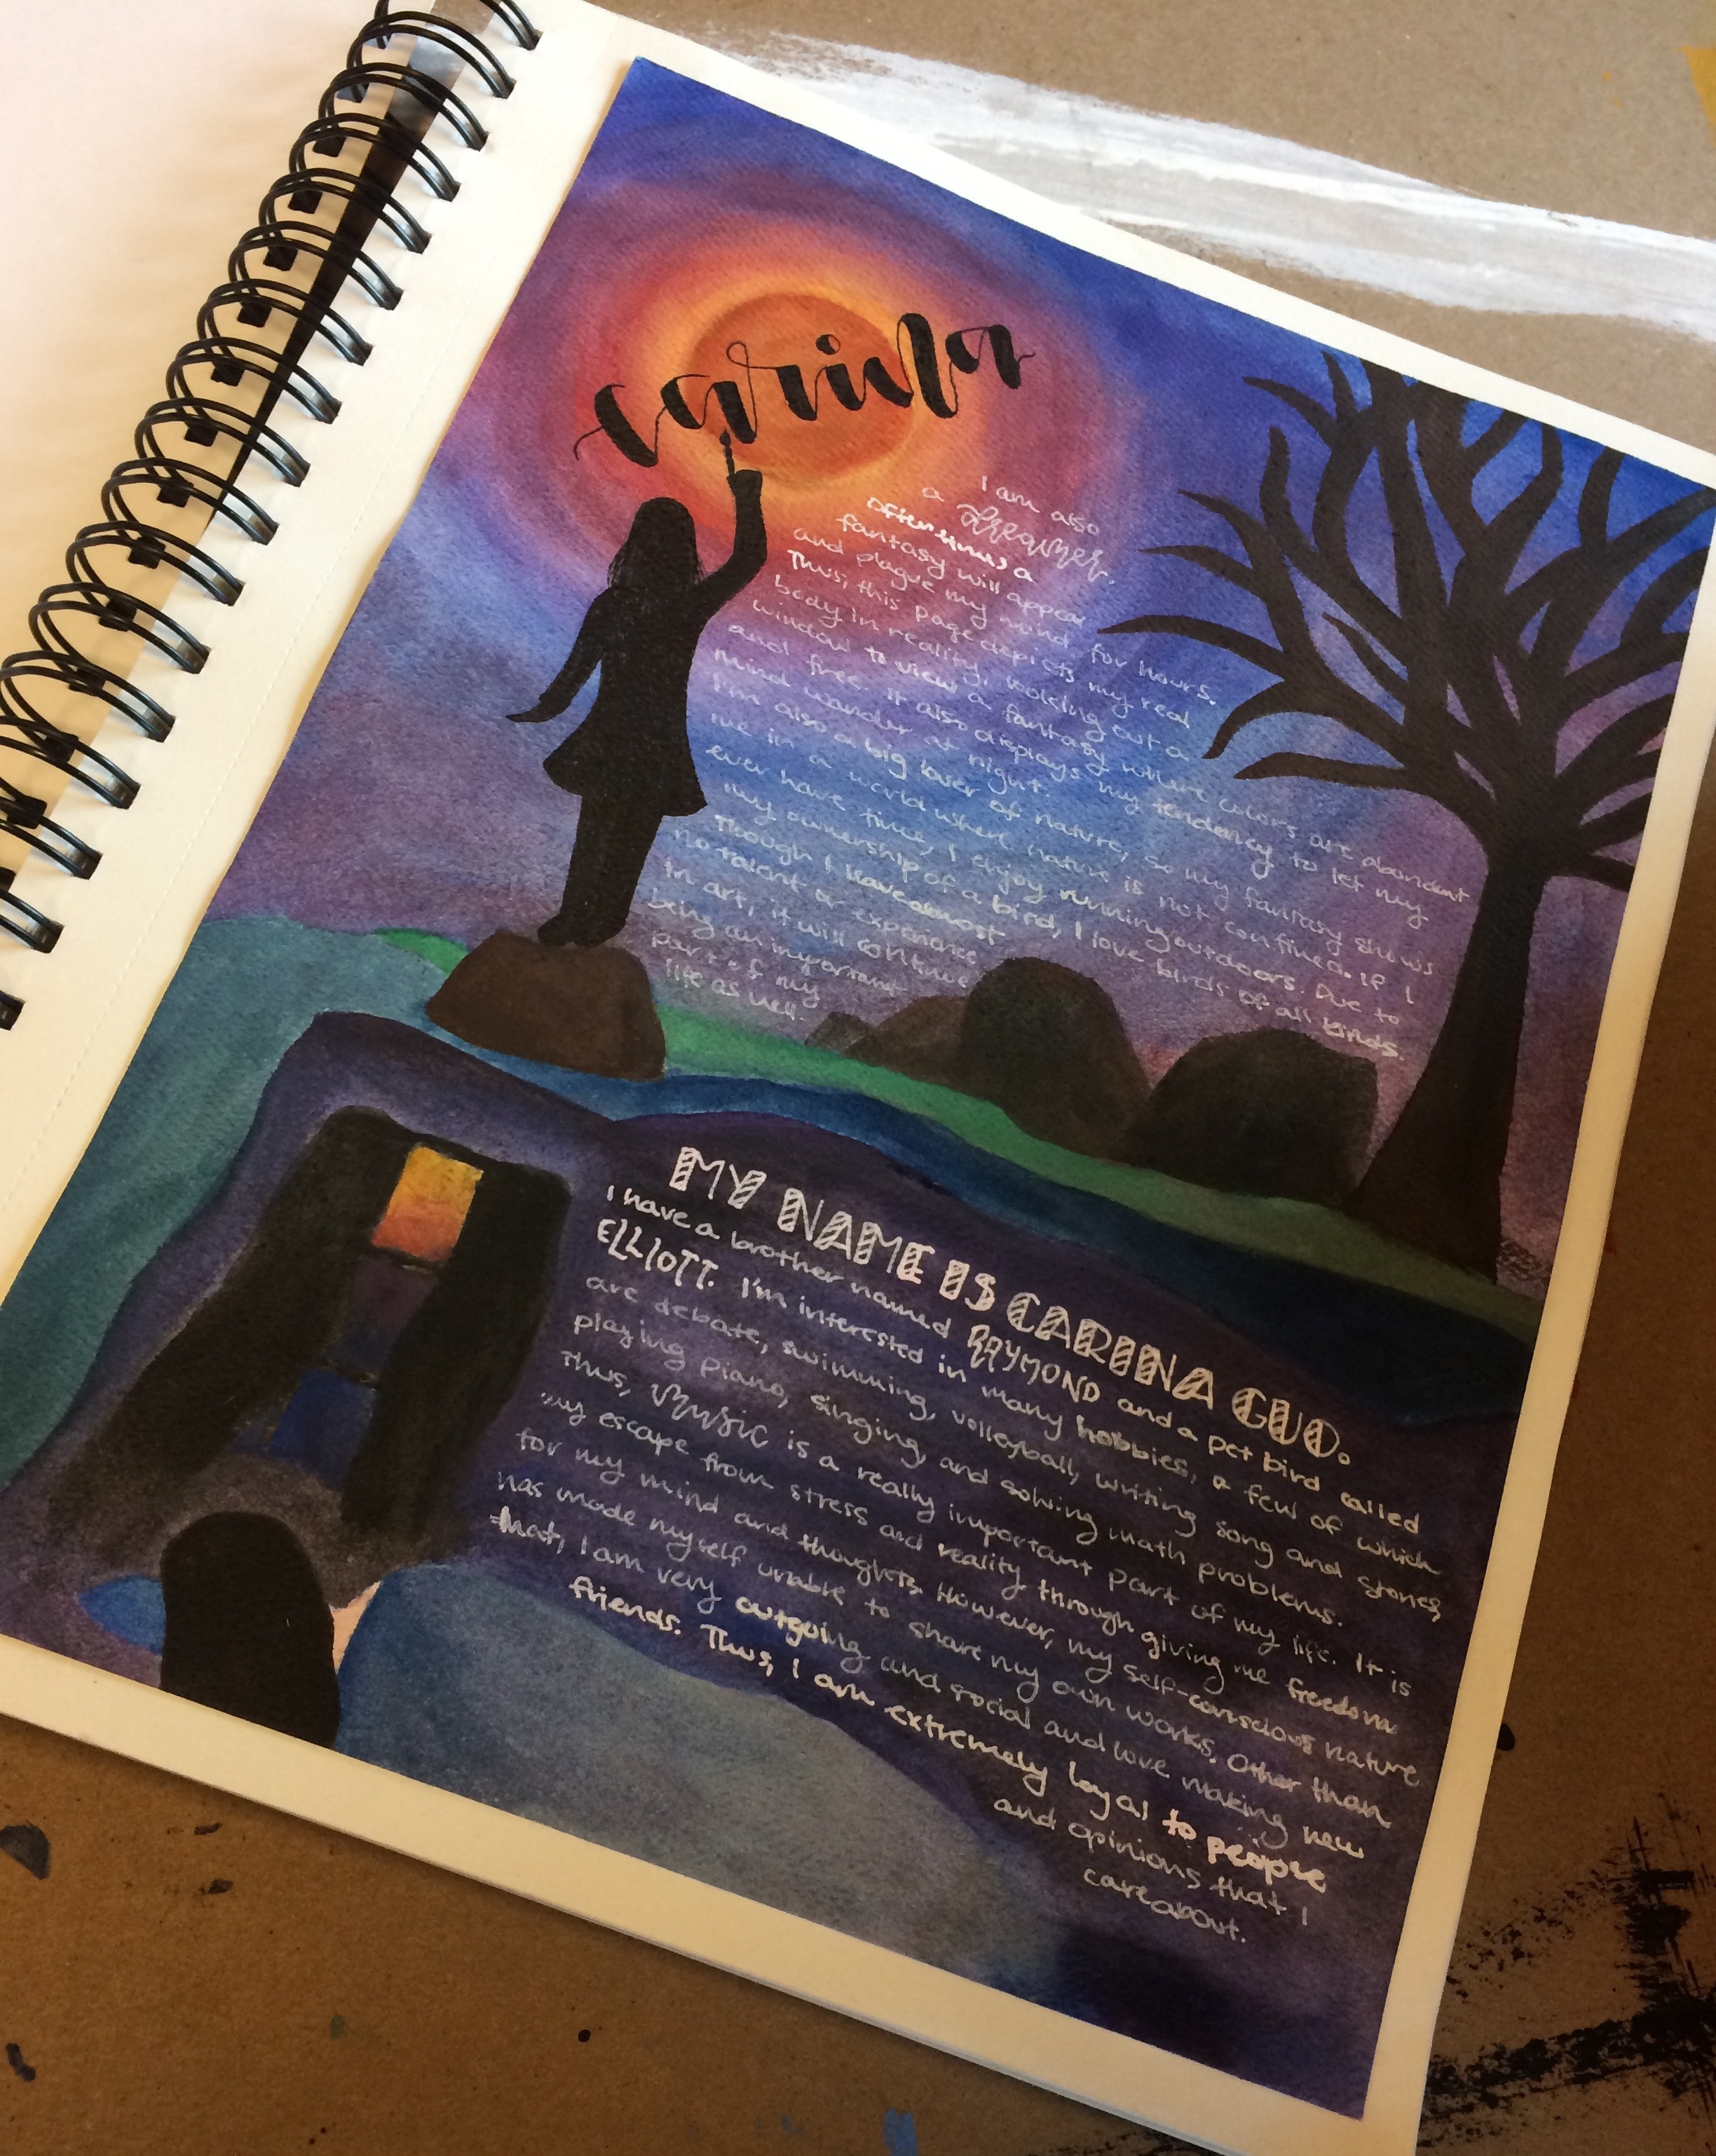 carina
I am also
a dreamer.
Often times a
fantasy will appear
and plague my mind for hours.
Thus, this page depicts my real
body in reality, looking out a
window to view a fantasy where colors are abundant
and free. It also displays my tendency to let my
mind wander at night.
I'm also a big lover of nature, so my fantasy shows
me in a world where nature is not confined. If I
ever have time, I enjoy running outdoors. Due to
my ownership of a bird, I love birds of all kinds.
Though I have almost
no talent or experience
in art, it will continue
being an important
part of my
life as well.
MY NAME IS CARINA GUO.
I have a brother named RAYMOND and a pet bird called
ELLIOTT. I'm interested in many hobbies, a few of which
are debate, swimming, volleyball, writing song and stories,
playing piano, singing, and solving math problems.
Thus, Music is a really important part of my life. It is
my escape from stress and reality through giving me freedom
for my mind and thoughts. However, my self-conscious nature
has made myself unable to share my own works. Other than
that, I am very outgoing and social and love making new
friends. Thus, I am extremely loyal to people
and opinions that I
care about.